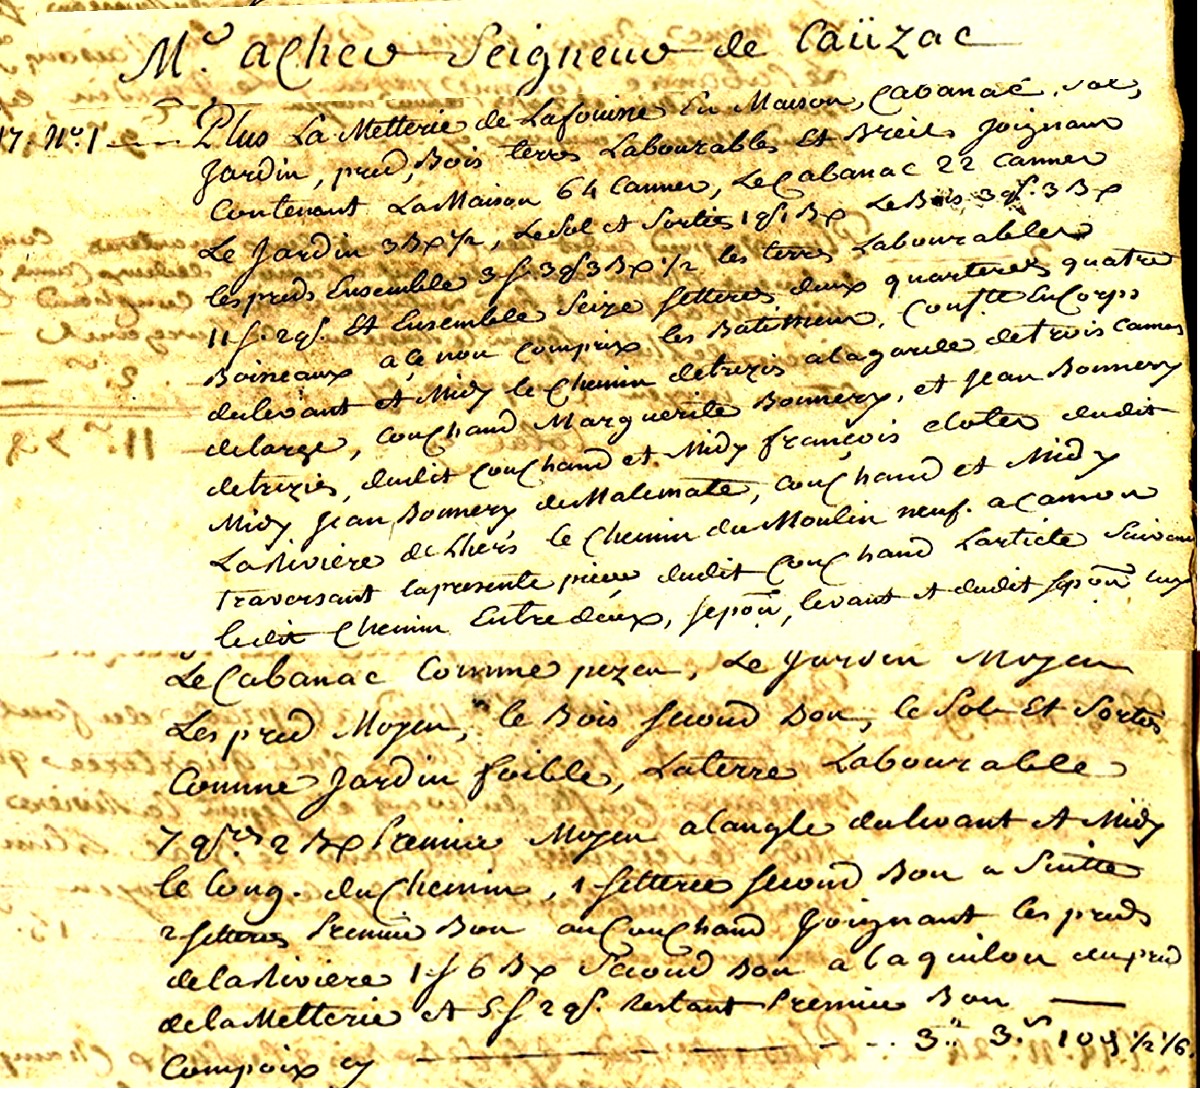 Mr. acher Seigneur de Caüzac
17. No. 1 Plus La Metterie de Lafouine En Maison, Cabanac, Sol,
Jardin, pred, Bois terres Labourables Et Breils Joignant
Contenant La Maison 64 Cannes, Le Cabanac 22 cannes
Le Jardin 3 Bx 1/2, Le Sol et Sorties 1 qf. 1 Bx Le Bois 3 qf. 3 Bx
les preds Ensemble 3 f. 3 qf 3 Bx 1/2 les terres Labourables
11 f. 2 qf. Et Ensemble Seize setterees deux quarterees quatre
Boineaux a ce non comprix les Batimens, Confte En Corps
du levant et Midy le Chemin de trezis a lagarde de trois cannes
de large, Couchand Marguerite Bonnery, et Jean Bonnery
de trezies, dudit couchand et Midy françois dudit
Midy Jean Bonnery de Malemate, couchand et Midy
La Riviere de Lhers le Chemin du Moulin neuf. a Camon
traversant la presente piece dudit couchand Larticle Suivant
ledit Chemin Entre deux, sepon, levant et dudit sepon
Le Cabanac Comme pezen, Le Jardin Moyen
Les pred Moyen, le Bois second Bon, le Sol Et Sorties
Comme Jardin foible, La terre Labourable
7 qres 2 Bx Premier Moyen a langle du levant et Midy
le long. du Chemin, 1 setteree second Bon a Suitte
2 setterees Premier Bon au Couchand Joignant les preds
de la Riviere 1 f 6 Bx Second Bon a laquilon du pred
de la Metterie et 5 f 2 qf. Restant Premier Bon
Compoix cy 3 " 3. s 10 d 1/2 1/6